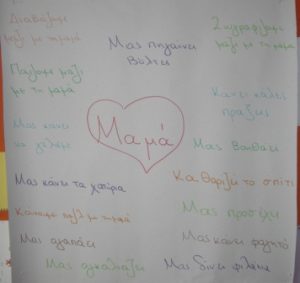 Διαβάζουμε
μαζί με τη μαμά
Ζωγραφίζουμε
μαζί με τη μαμά
Μας πηγαίνει
βόλτα
Παίζουμε μαζί
με τη μαμά
Κάνει καλές
πράξεις
Μας κάνει
να γελάμε
Μαμά
Μας βοηθάει
Μας κάνει τα χατίρια
Καθαρίζει το σπίτι
Κάνουμε παζλ με τη μαμά
Μας προσέχει
Μας αγαπάει
Μας κάνει φαγητό
Μας αγκαλιάζει
Μας δίνει φιλάκια